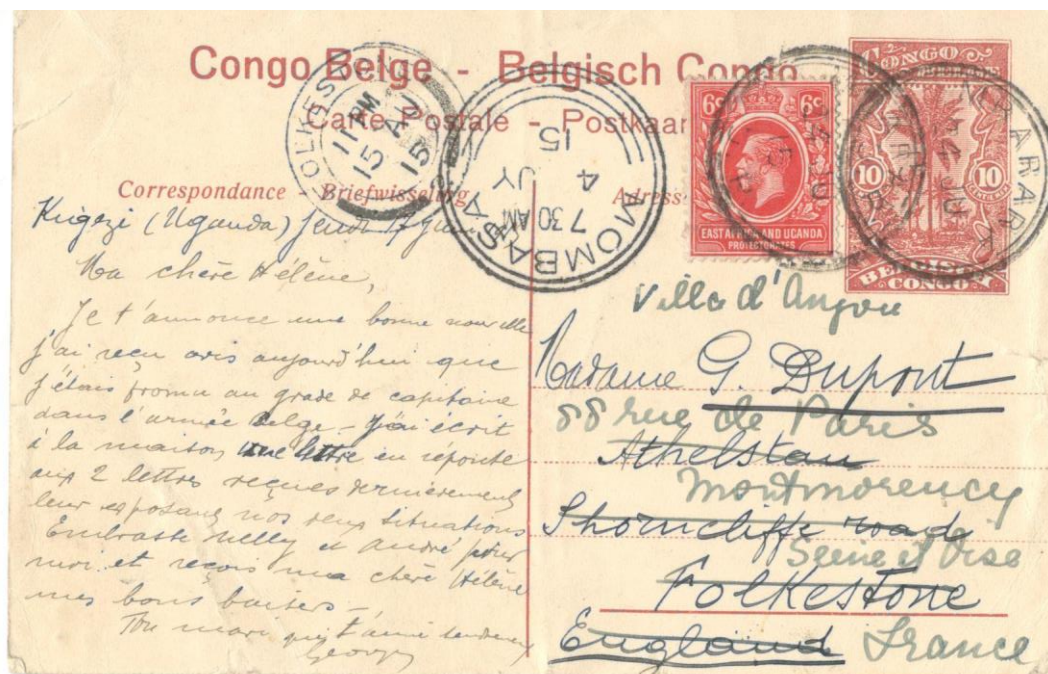 Congo Belge - Belgisch Congo
Carte Postale - Postkaar
Correspondance Briefwisseling
Adress
FOLKES
11 PM
15 AU
15
MOMBASA
7 30 AM
4 JY
15
6c 6c
EAST AFRICA AND UGANDA
PROTECTORATES
CONGO
BELGE
10 10
BELGISCH
CONGO
MBARARA
Kigezi (Uganda) Jeudi 17 Juin
Ma chère Hélène,
Je t'annonce une bonne nouvelle
j'ai reçu avis aujourd'hui que
j'étais promu au grade de capitaine
dans l'armée belge - J'ai écrit
à la maison une lettre en réponse
aux 2 lettres reçues dernièrement
leur exposant nos deux situations
Embrasse Nelly et André pour
moi et reçois ma chère Hélène
mes bons baisers -
Ton mari qui t'aime tendrement
Georges
Villa d'Anjou
Madame G. Dupont
88 rue de Paris
Athelstan
Montmorency
Shorncliffe road
Seine et Oise
Folkestone
England France